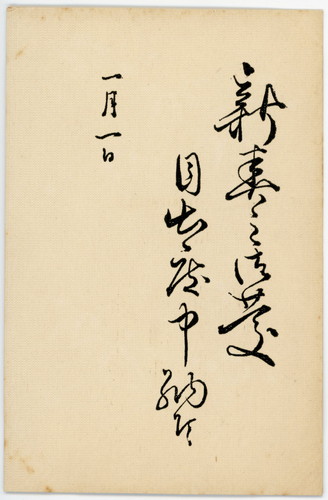 新春之御慶
目出度申納候
一月一日